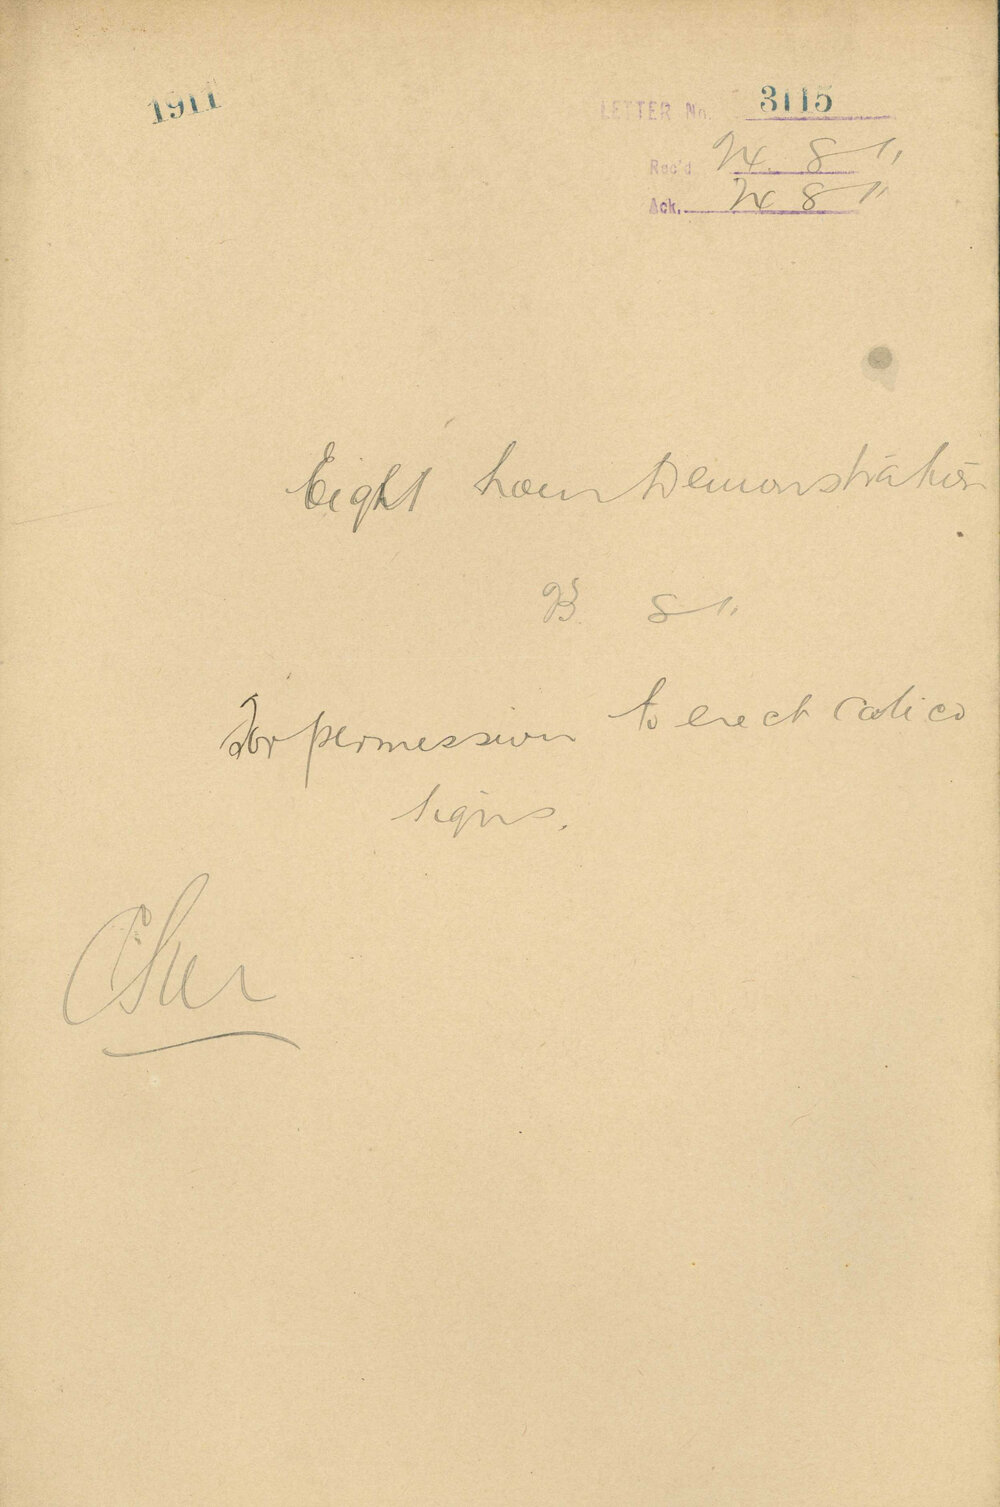 1911
LETTER No. 3115
Rec'd 24 8 11
Ack. 24 8 11
Eight hour Demonstration
23 8 11
For permission to erect Calico
signs.